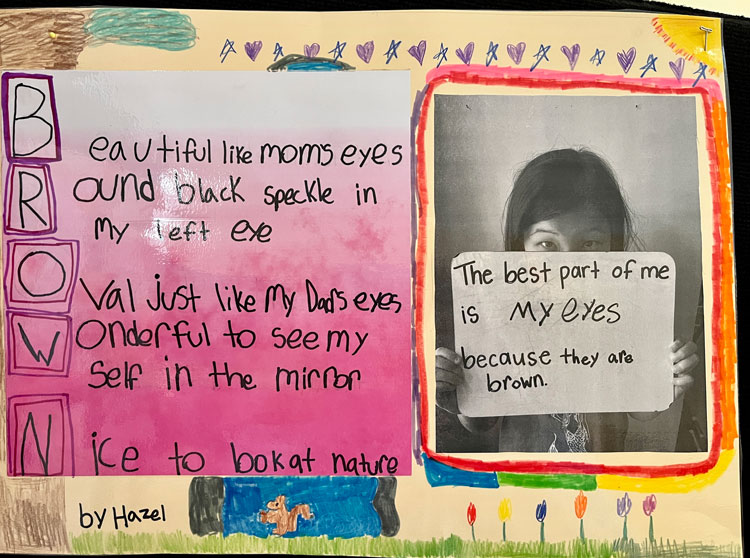 Beautiful like mom's eyes
Round black speckle in
my left eye
Oval just like My Dad's eyes
Wonderful to see my
self in the mirror
Nice to book at nature
by Hazel
The best part of me
is my eyes
because they are
brown.